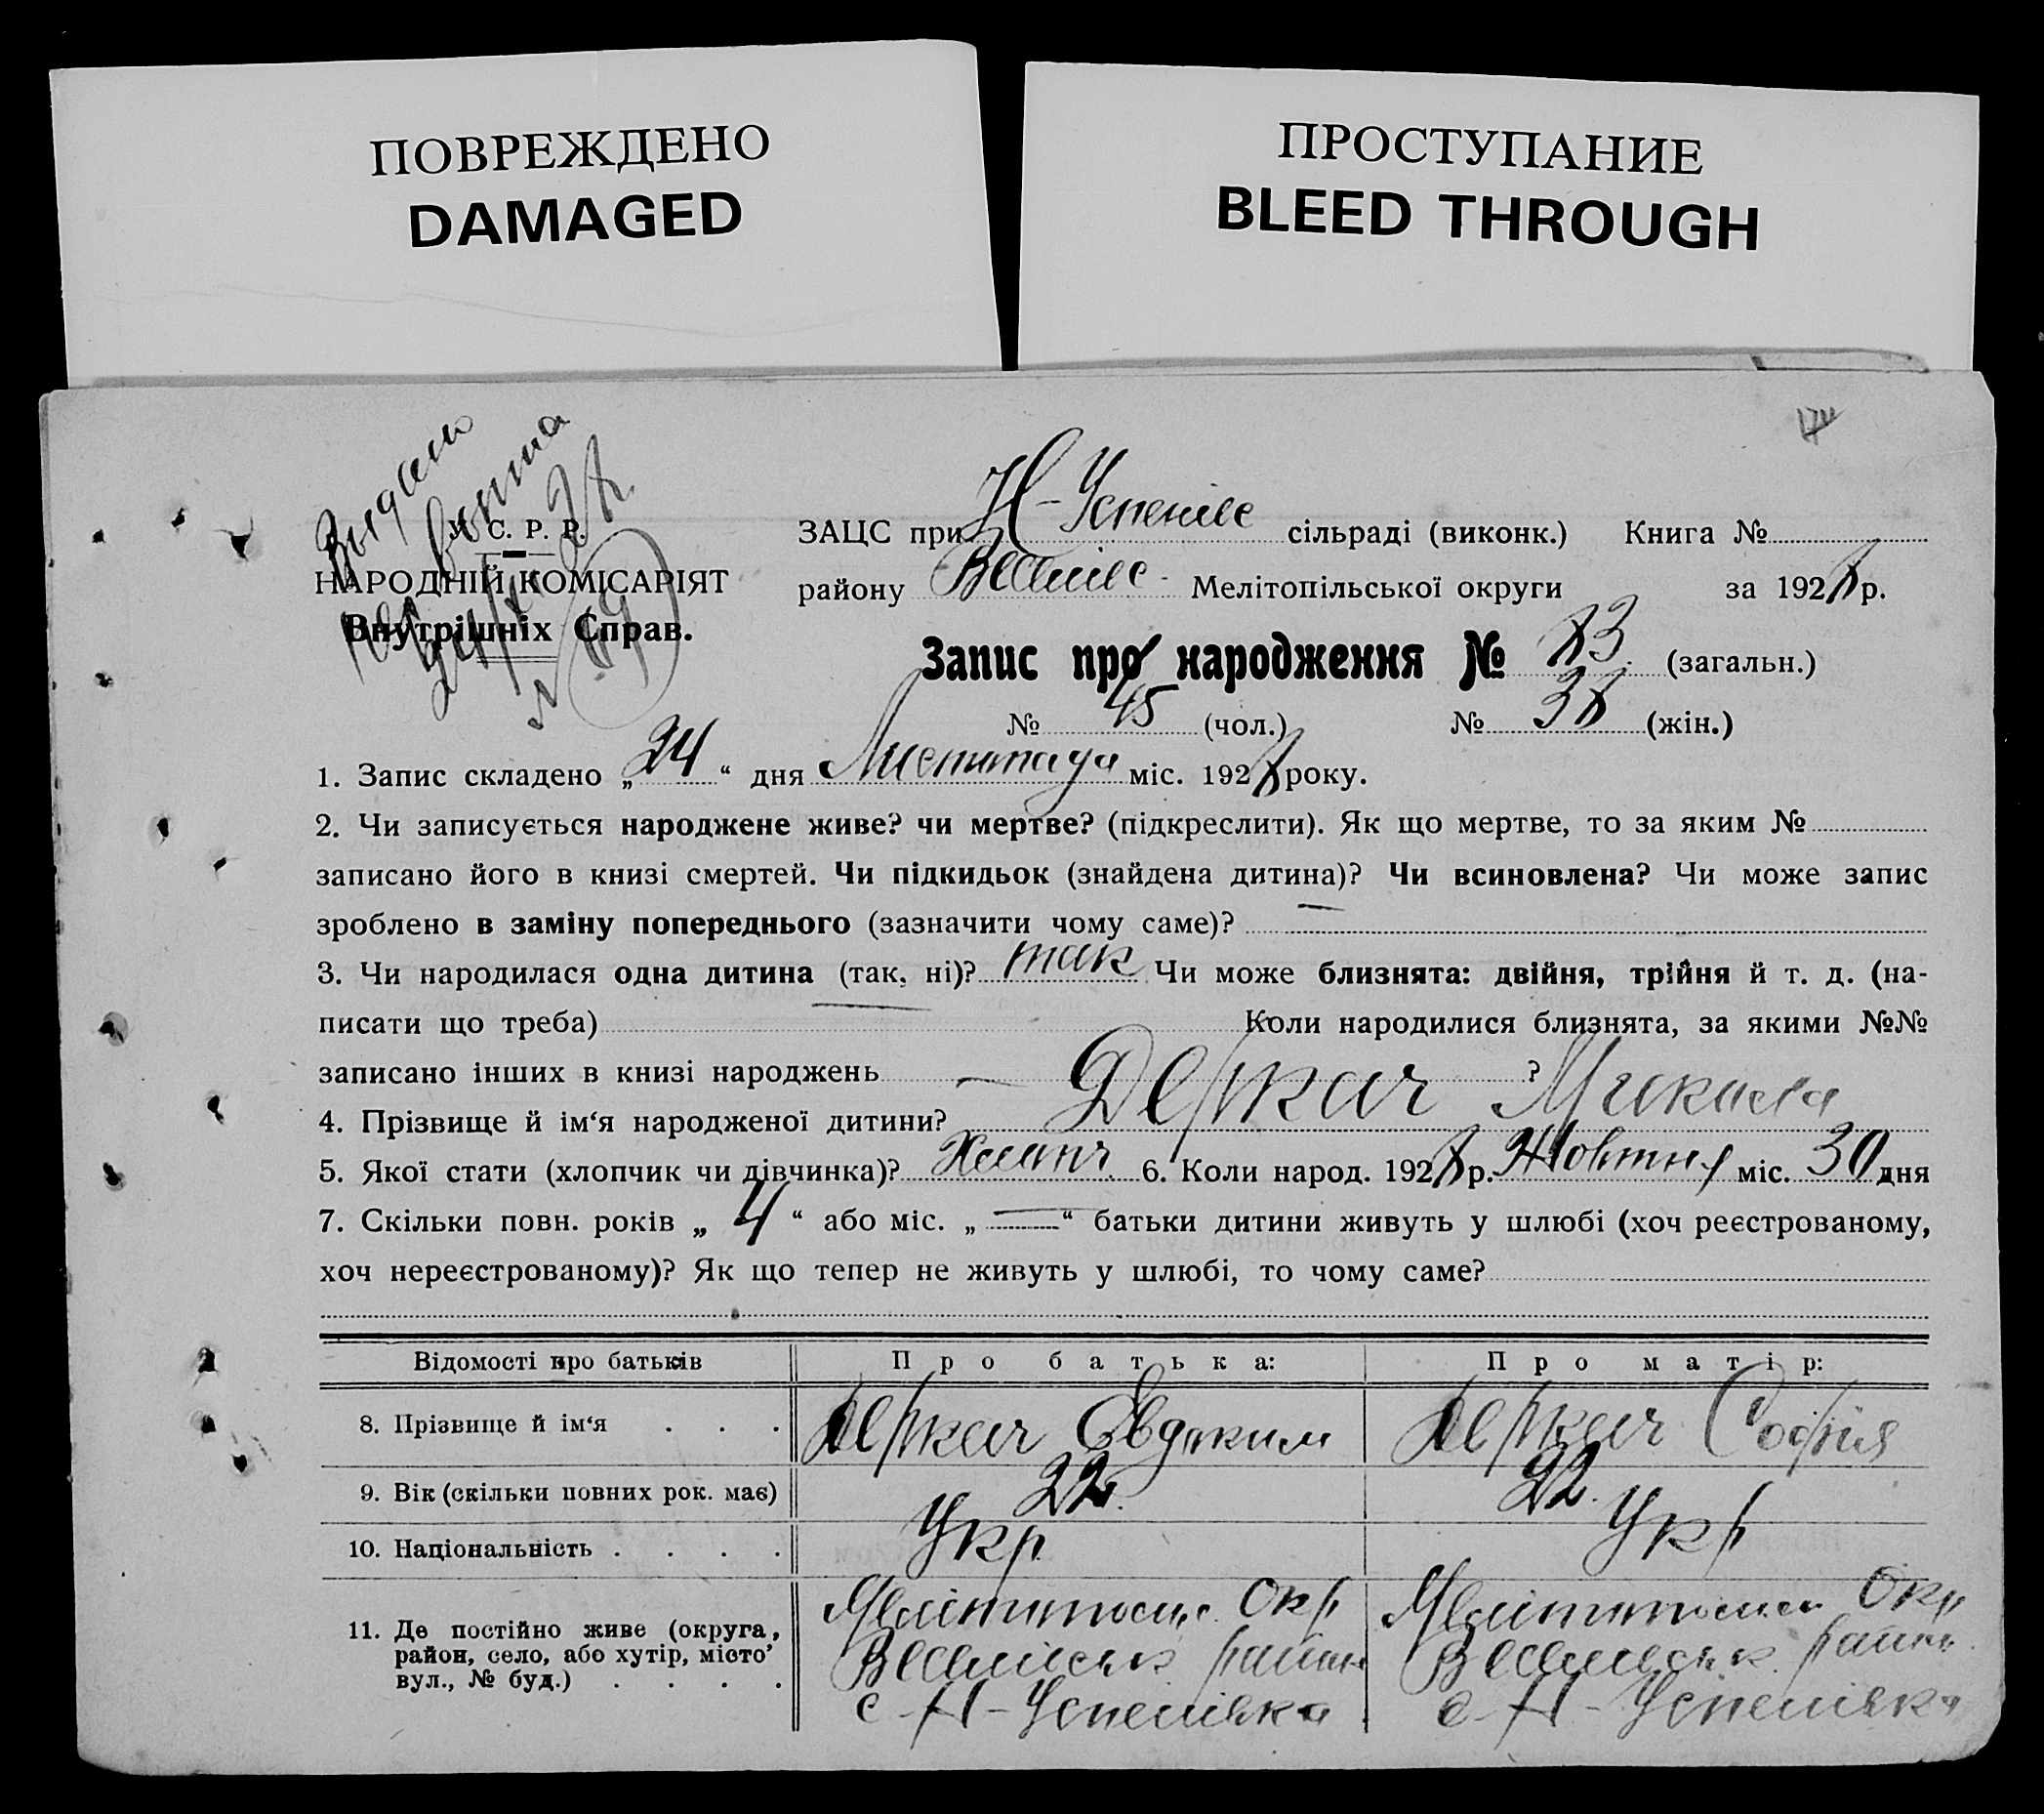 ПОВРЕЖДЕНО
DAMAGED
ПРОСТУПАНИЕ
BLEED THROUGH
У. С. Р. Р.
НАРОДНІЙ КОМІСАРІЯТ
Внутрішніх Справ.
ЗАЦС при Н-Успенівс сільраді (виконк.) Книга №
району Веселівс Мелітопільської округи за 192 р.
Запис про народження № (загальн.)
№ 45 (чол.) № (жін.)
1. Запис складено „24“ дня Листопада міс. 192 року.
2. Чи записується народжене живе? чи мертве? (підкреслити). Як що мертве, то за яким №
записано його в книзі смертей. Чи підкидьок (знайдена дитина)? Чи всиновлена? Чи може запис
зроблено в заміну попереднього (зазначити чому саме)? —
3. Чи народилася одна дитина (так, ні)? так Чи може близнята: двійня, трійня й т. д. (на-
писати що треба) — Коли народилися близнята, за якими №№
записано інших в книзі народжень — ?
4. Прізвище й ім‘я народженої дитини? Деркач Микола
5. Якої стати (хлопчик чи дівчинка)? Хлопч. 6. Коли народ. 192 р. Жовтня міс. 30 дня
7. Скільки повн. років „4“ або міс. „—“ батьки дитини живуть у шлюбі (хоч реєстрованому,
хоч нереєстрованому)? Як що тепер не живуть у шлюбі, то чому саме?
Відомості про батьків Про батька: Про матір:
8. Прізвище й ім‘я . . . Деркач Овдоким Деркач Софія
9. Вік (скільки повних рок. має) 22. 22.
10. Національність . . . . Укр. Укр
11. Де постійно живе (округа, район, село, або хутір, місто’ вул., № буд.) . . . .
Мелітопольс. Окр Мелітопольс Окр
Веселівськ район Веселівськ. район
с-Н-Успенівка с-Н-Успенівка